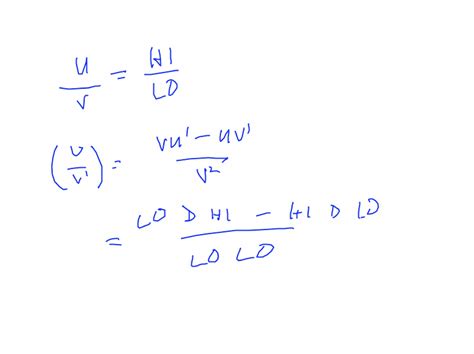 u/v = HI/LO
(u/v)' = (vu' - uv')/v²
= (LO D HI - HI D LO)/(LO LO)